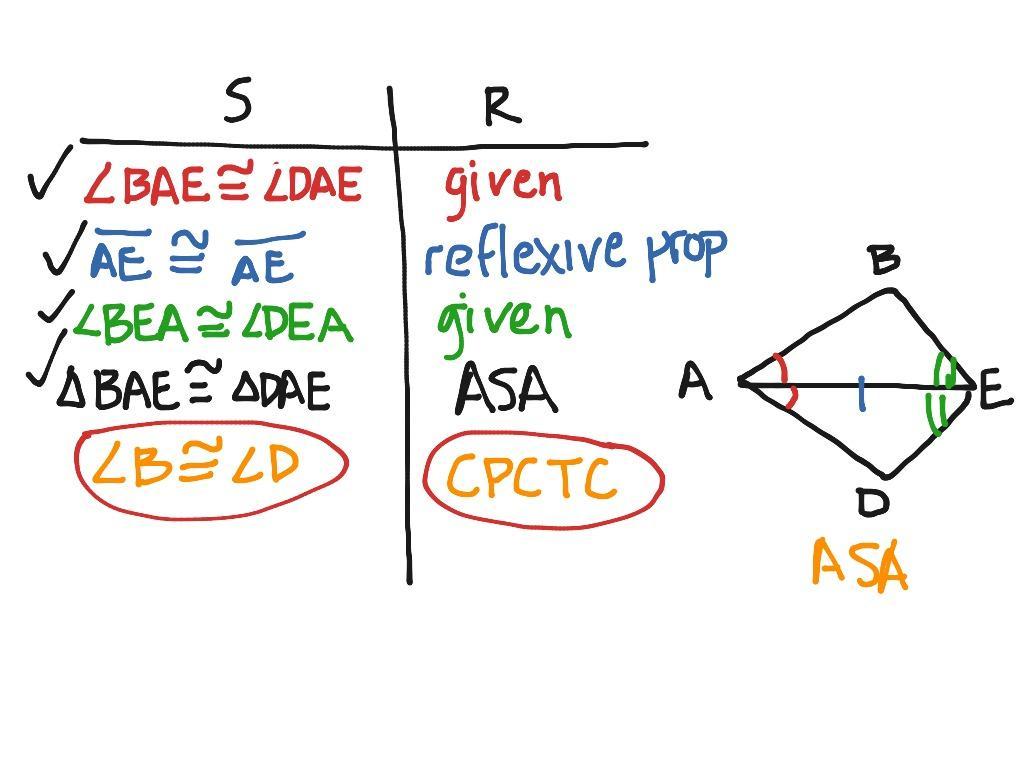 S R
∠BAE ≅ ∠DAE given
AE ≅ AE reflexive prop
∠BEA ≅ ∠DEA given
△BAE ≅ △DAE ASA
∠B ≅ ∠D CPCTC
B
A E
D
ASA